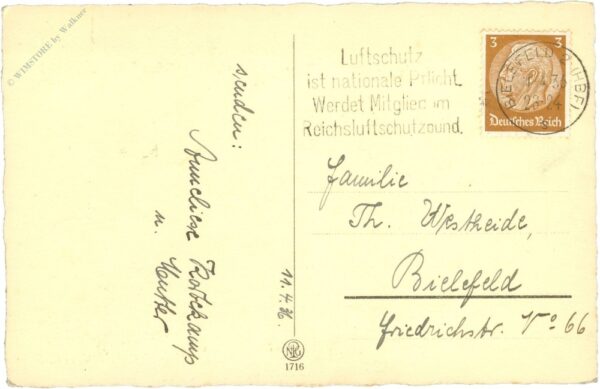 © WIMSTORE by Walkner
senden:
Anneliese
u. Mutter
11.4.36.
1716
Luftschutz
ist nationale Pflicht
Werdet Mitglied im
Reichsluftschutzbund.
3 3
BIELEFELD 2 (HBF)
Deutsches Reich
Familie
Th. Westheide,
Bielefeld
Friedrichstr. No 66